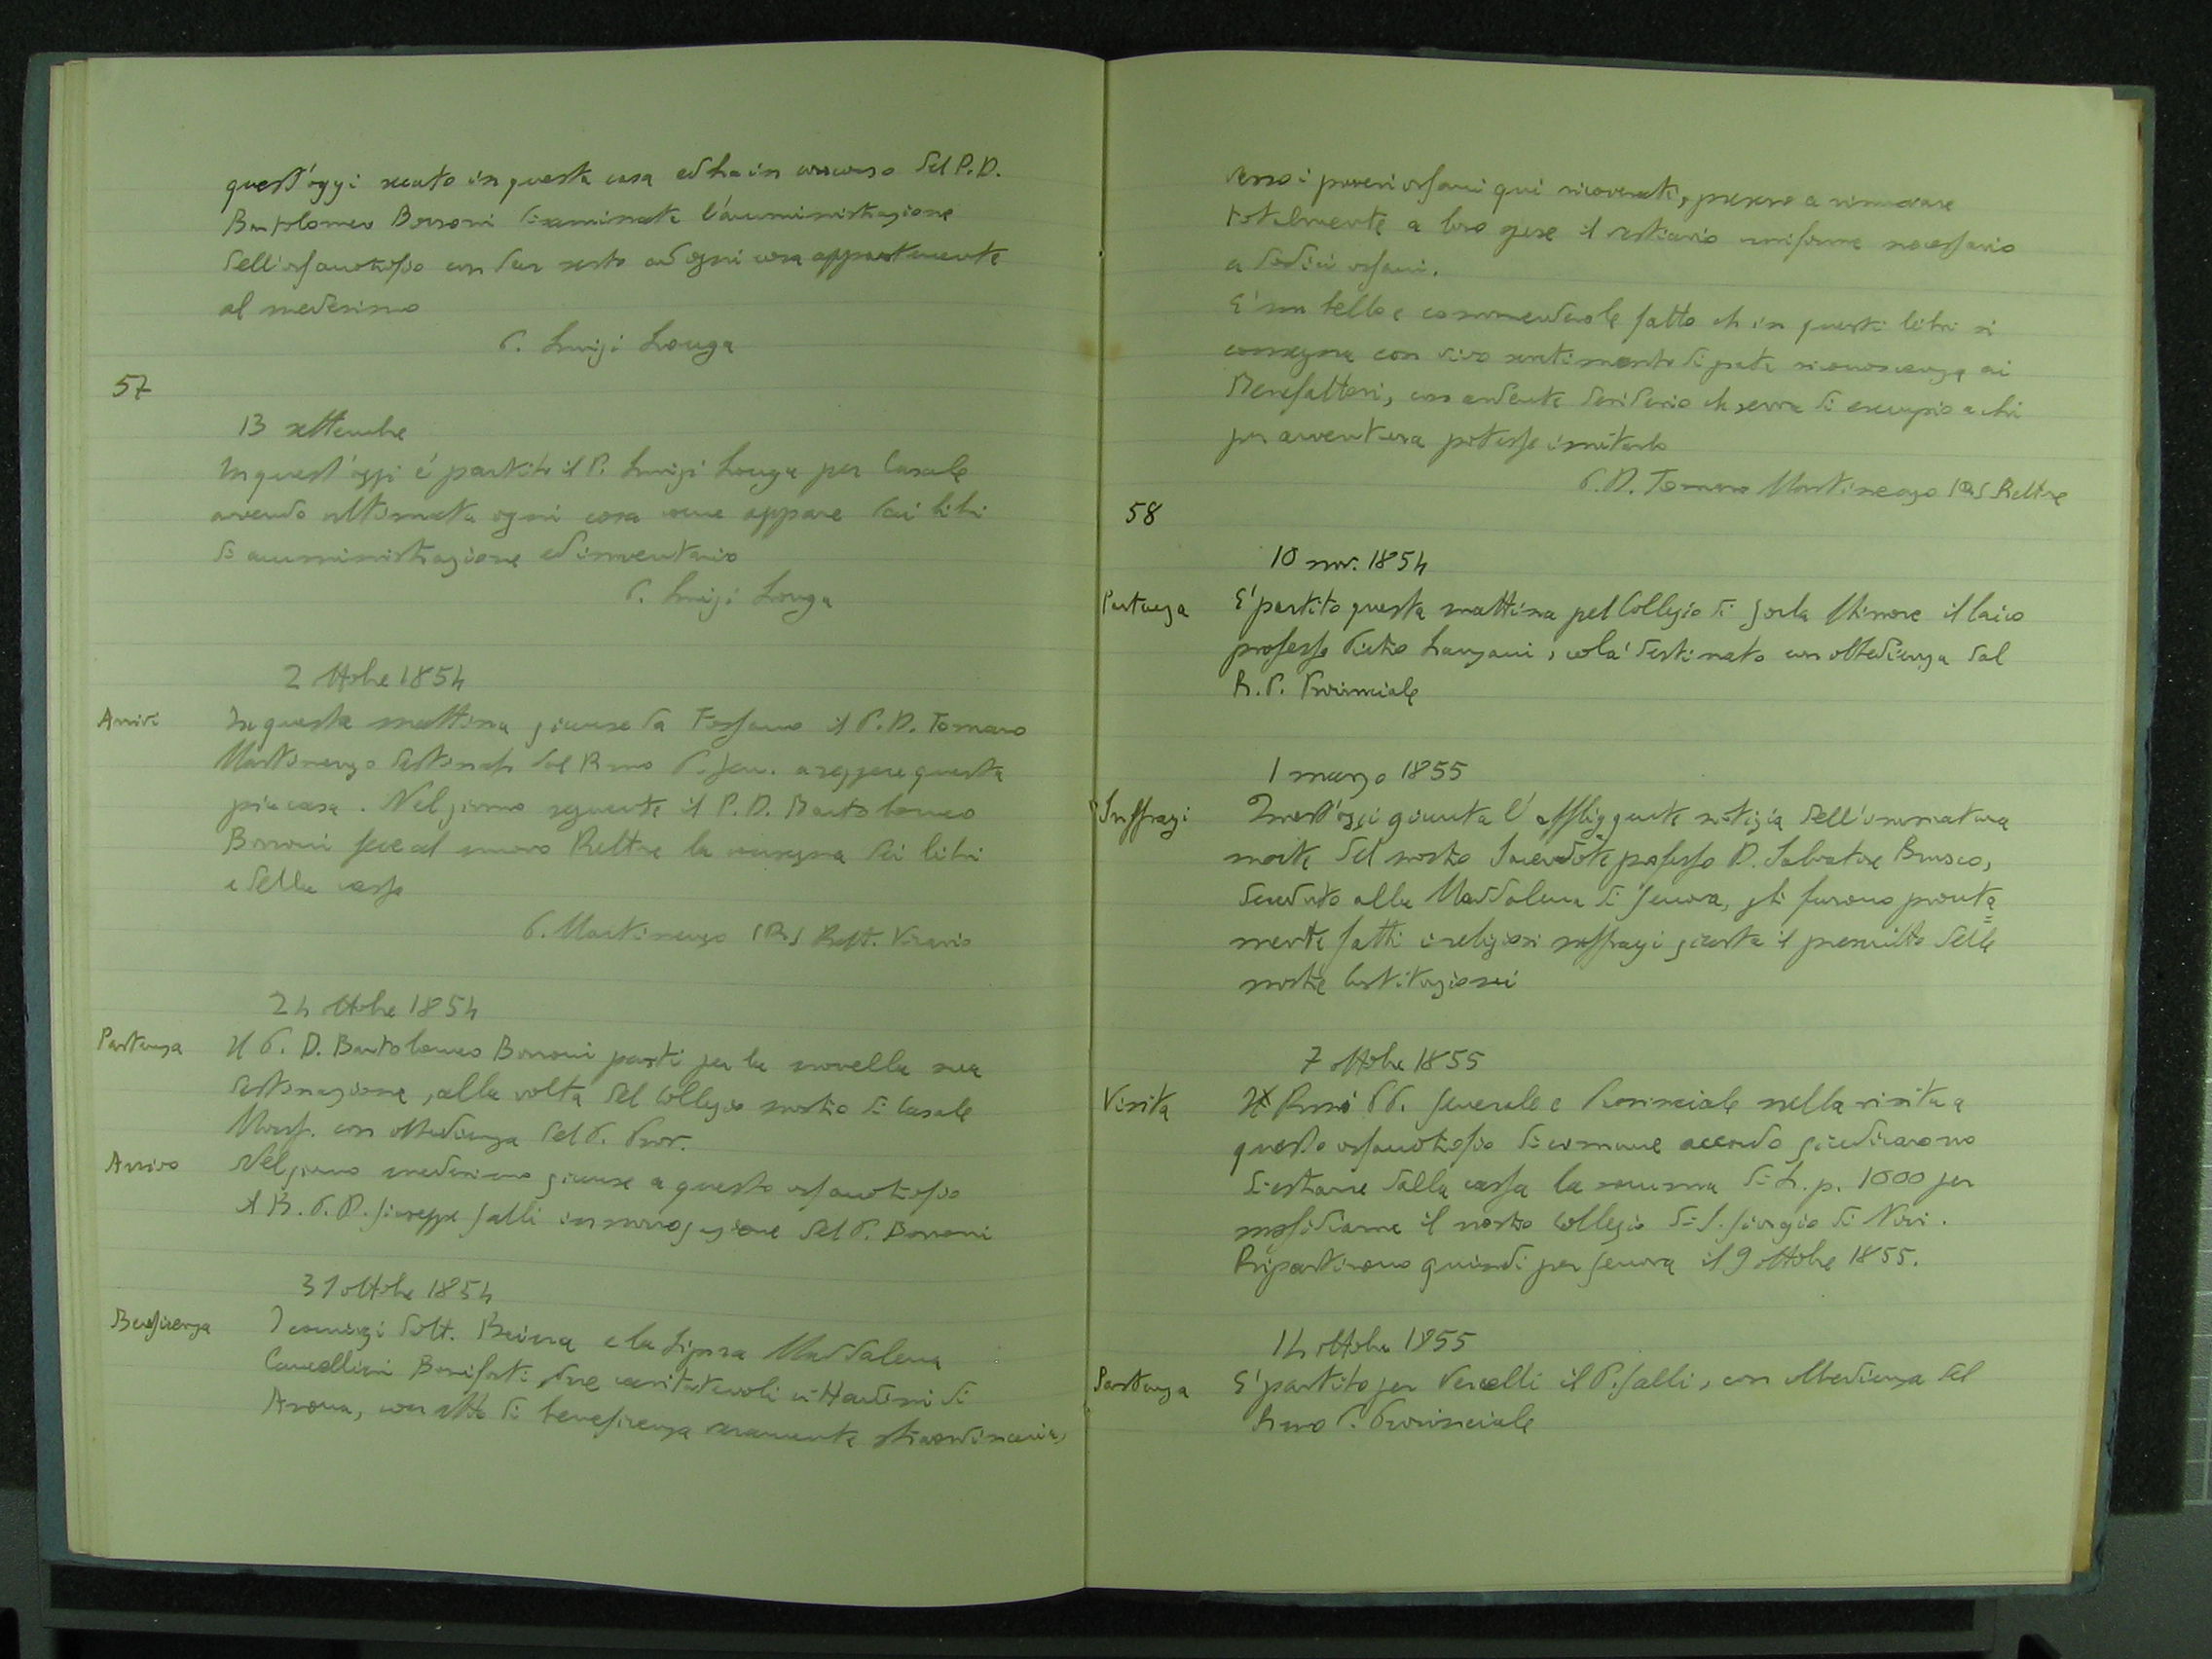 quest'oggi recato in questa casa ed ha in concorso del P. D.
Bartolomeo Borroni disaminata l'amministrazione
dell'orfanotrofio con dar sesto ad ogni cosa appartenente
al medesimo
P. Luigi Longa
57
13 settembre
In quest'oggi é partito il P. Luigi Longa per Casale
avendo ultimata ogni cosa come appare dai libri
di amministrazione ed inventario
P. Luigi Longa
2 ottobre 1854
Arrivi
In questa mattina giunse da Fossano il P. D. Tomaso
Martinengo destinato dal Rmo P. Gen. a reggere questa
pia casa. Nel giorno seguente il P. D. Bartolomeo
Borroni fece al nuovo Rettore la consegna dei libri
e della cassa
P. Martinengo CRS Rett. Vicario
24 ottobre 1854
Partenza
Il P. D. Bartolomeo Borroni partì per la novella sua
destinazione, alla volta del Collegio nostro di Casale
Monf. con obbedienza del P. Prov.
Arrivo
Nel giorno medesimo giunse a questo orfanotrofio
il R. P. D. Giuseppe Galli in surrogazione del P. Borroni
31 ottobre 1854
Beneficenza
I coniugi dott. e la Signora Maddalena
Boniforti due caritatevoli cittadini di
Arona, con atto di beneficenza veramente straordinaria,
verso i poveri orfani qui ricoverati, presero a rinnovare
totalmente a loro spese il vestiario uniforme necessario
a dodici orfani.
E' un bello e commendevole fatto ch in questi libri si
consegna con vivo sentimento di grata riconoscenza ai
Benefattori, con ardente desiderio ch serva di esempio a chi
per avventura potesse imitarlo
P. D. Tomaso Martinengo CRS Rettore
58
10 nov. 1854
Partenza
E' partito questa mattina pel Collegio di Gorla Minore il laico
professo Pietro Lanzani, colà destinato con obbedienza dal
R. P. Provinciale
1 marzo 1855
Suffragi
Quest'oggi giunta l'affliggente notizia dell'immatura
morte del nostro Sacerdote professo D. Salvatore Brusco,
accaduta alla Maddalena di Genova, gli furono pronta=
mente fatti i religiosi suffragi giusta il prescritto delle
nostre Costituzioni
7 ottobre 1855
Visita
Rmi PP. Generale e Provinciale nella visita a
questo orfanotrofio di comune accordo giudicarono
di estrarre dalla cassa la somma di L. p. 1000 per
sussidiarne il nostro Collegio di S. Giorgio di Novi.
Ripartirono quindi per Genova il 9 ottobre 1855.
14 ottobre 1855
Partenza
E' partito per Vercelli il P. Galli, con obbedienza del
Rmo P. Provinciale